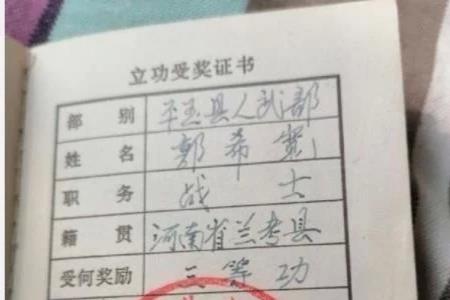 立功受奖证书
部别 平玉县人武部
姓名 郭希宽
职务 战士
籍贯 河南省兰考县
受何奖励 三等功